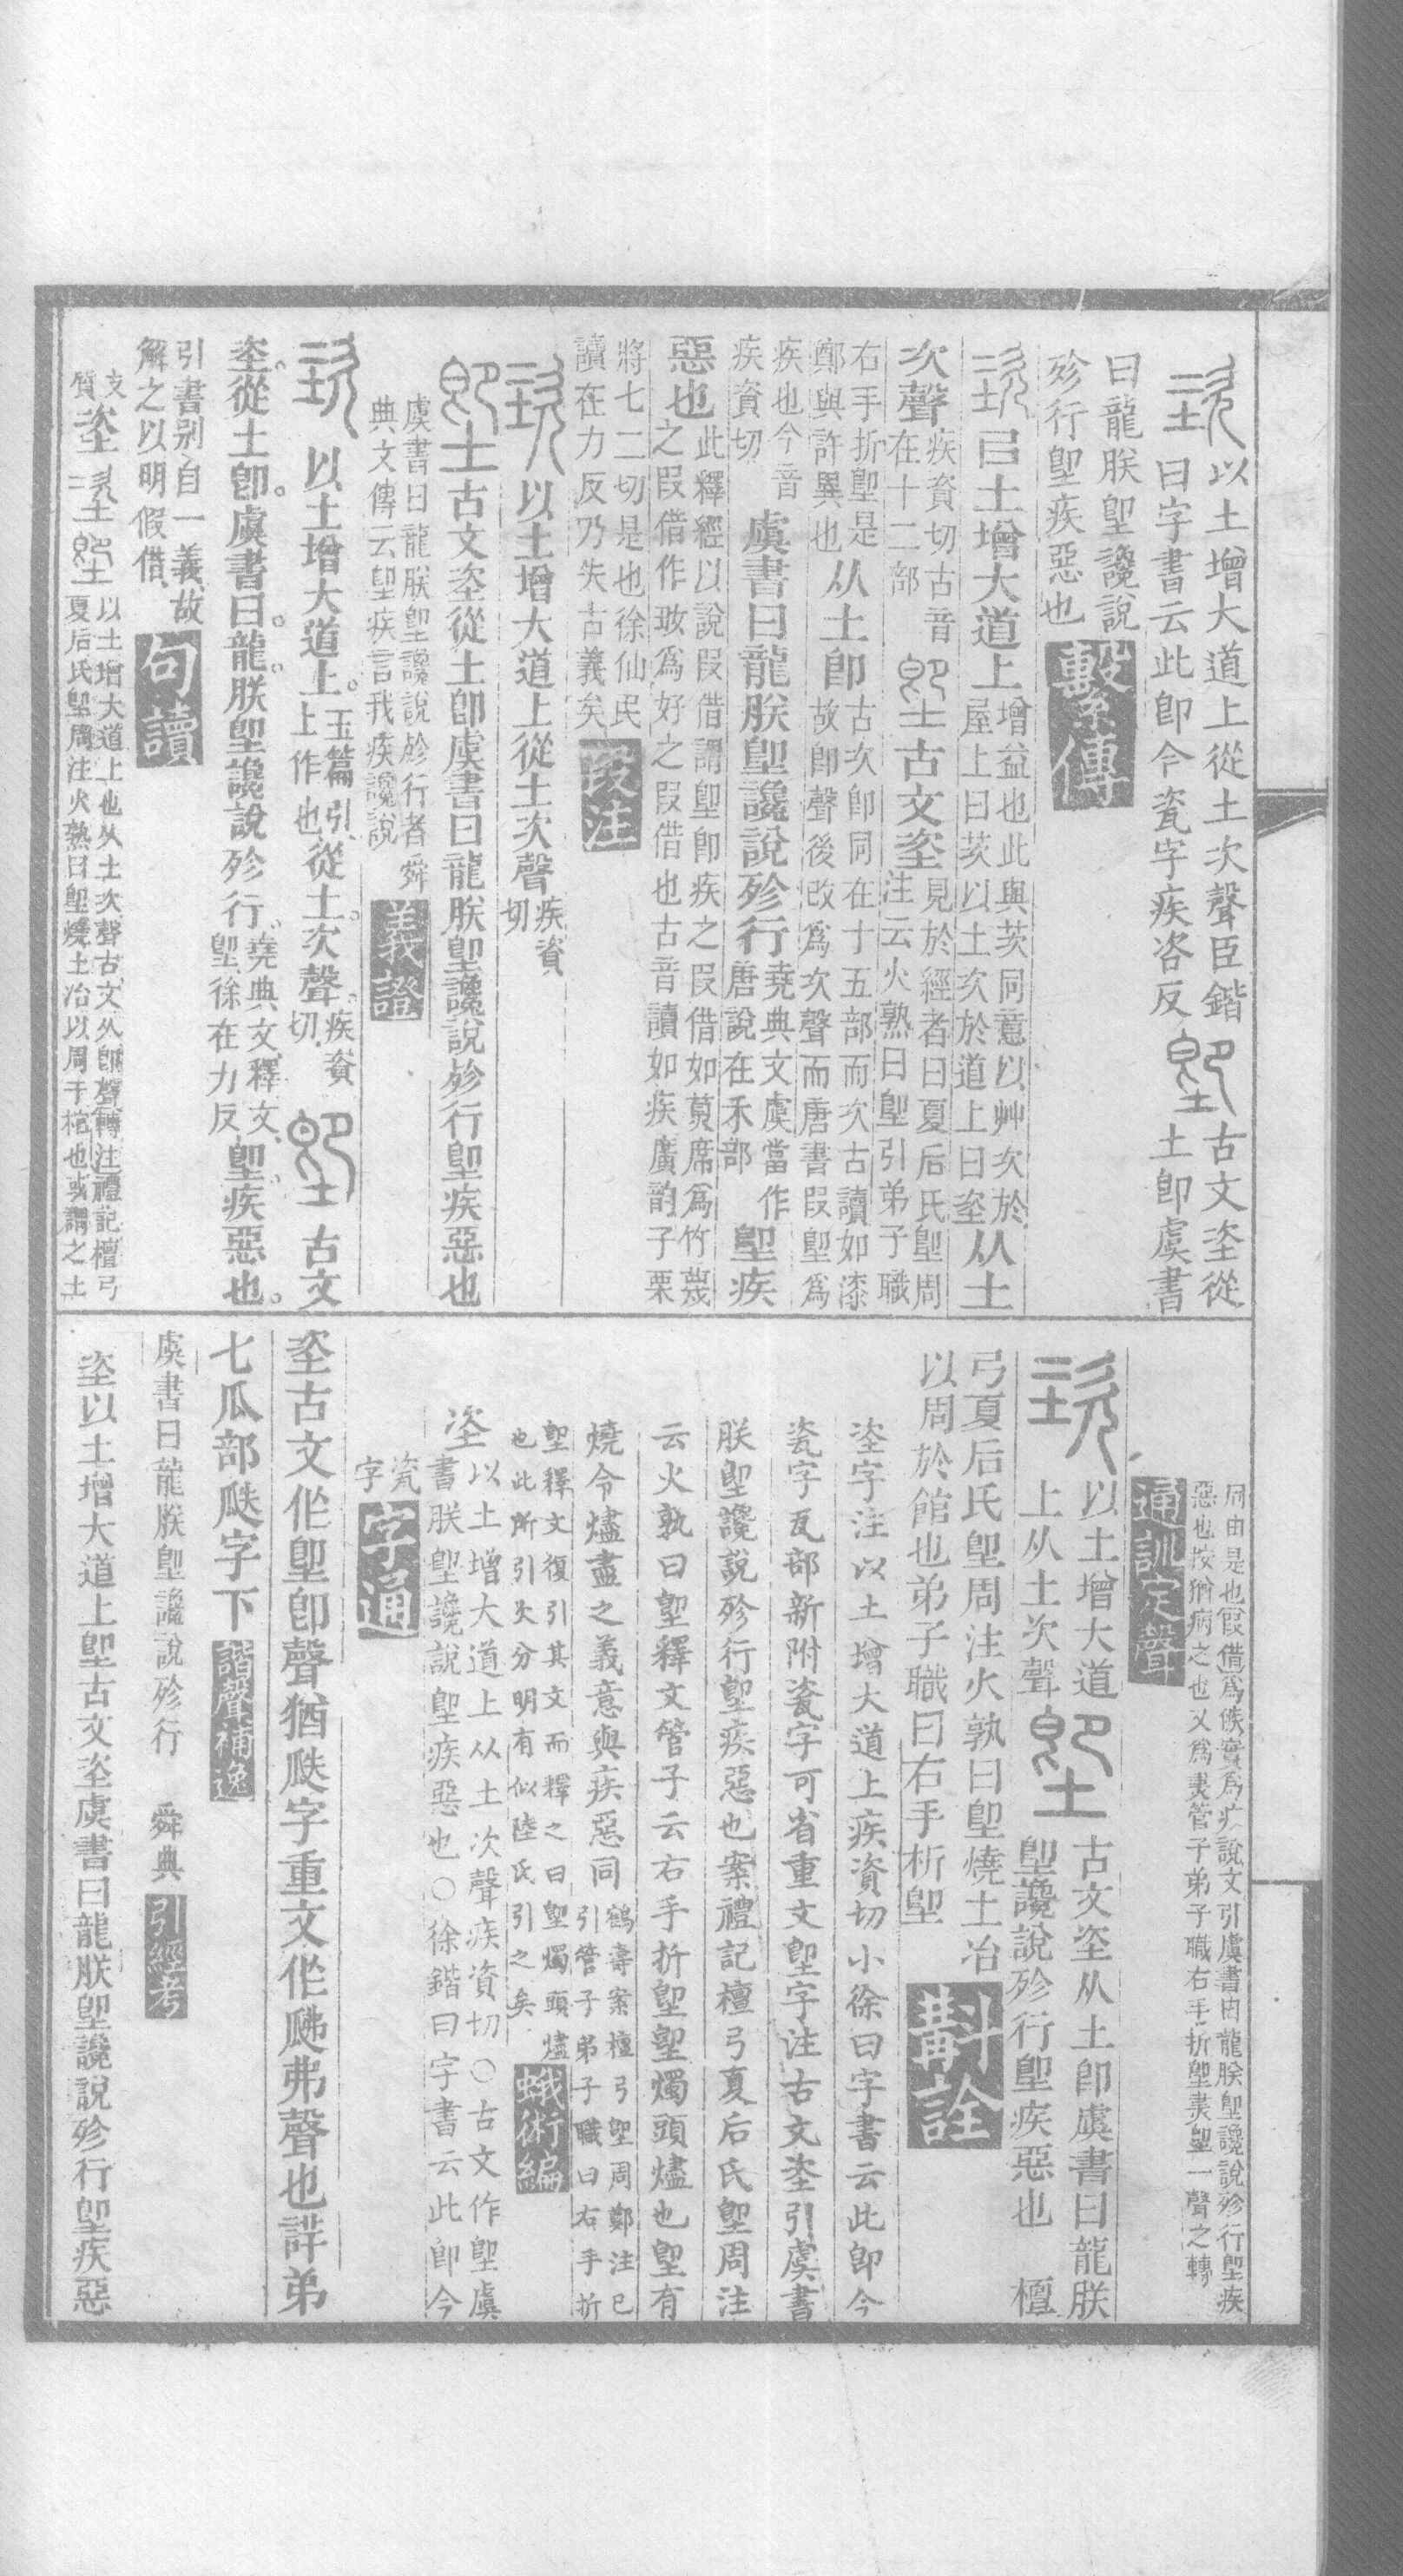 以土增大道上從土次聲臣鍇
曰字書云此卽今瓷字疾咨反
古文垐從
土卽虞書
曰龍朕堲讒說
殄行堲疾惡也
繫傳
㠯土增大道上
增益也此與茨同意以艸次於
屋上曰茨以土次於道上曰垐
从土
次聲
疾資切古音
在十二部
古文垐
見於經者曰夏后氏堲周
注云火熟曰堲引弟子職
右手折堲是
鄭與許異也
从土卽
古次卽同在十五部而次古讀如漆
故卽聲後改爲次聲而唐書叚堲爲
疾也今音
疾資切
虞書曰龍朕堲讒說殄行
堯典文虞當作
唐說在禾部
堲疾
惡也
此釋經以說叚借謂堲卽疾之叚借如莫席爲竹蔑
之叚借作㺿爲好之叚借也古音讀如疾廣韵子栗
將七二切是也徐仙民
讀在力反乃失古義矣
段注
以土增大道上從土次聲
疾資
切
古文垐從土卽虞書曰龍朕堲讒說殄行堲疾惡也
虞書曰龍朕堲讒說殄行者舜
典文傳云堲疾言我疾讒說
義證
以土增大道上。
玉篇引、
上作也
從土。次聲。
疾資
切
古文
垐。從土卽。虞書曰。龍。朕堲讒說殄行。
堯典文、釋文、
堲、徐在力反
堲。疾惡也。
引書别自一義、故
解之以明假借、
句讀
支
質
垐
以土增大道上也从土次聲古文从卽聲轉注禮記檀弓
夏后氏堲周注火熟曰堲燒土冶以周于棺也或謂之土
周由是也叚借爲嫉實爲疾說文引虞書曰龍朕堲讒說殄行堲疾
惡也按猶病之也又爲㶳管子弟子職右手折堲㶳堲一聲之轉
通訓定聲
以土增大道
上从土次聲
古文垐从土卽虞書曰龍朕
堲讒說殄行堲疾惡也 檀
弓夏后氏堲周注火孰曰堲燒土冶
以周於館也弟子職曰右手析堲
斠詮
垐字注以土增大道上疾資切小徐曰字書云此卽今
瓷字瓦部新附瓷字可省重文堲字注古文垐引虞書
朕堲讒說殄行堲疾惡也案禮記檀弓夏后氏堲周注
云火孰曰堲釋文管子云右手折堲堲燭頭燼也堲有
燒令燼盡之義意與疾惡同
鶴壽案檀弓堲周鄭注已
引管子弟子職曰右手折
堲釋文復引其文而釋之曰堲燭頭燼
也此所引欠分明有似陸氏引之矣
蛾術編
垐
以土增大道上从土次聲疾資切○古文作堲虞
書朕堲讒說堲疾惡也○徐鍇曰字書云此卽今
瓷
字
字通
垐古文作堲卽聲猶瓞字重文作𤬄弗聲也詳弟
七瓜部瓞字下
諧聲補逸
虞書曰龍朕堲讒說殄行 舜典
引經考
垐以土增大道上堲古文垐虞書曰龍朕堲讒說殄行堲疾惡